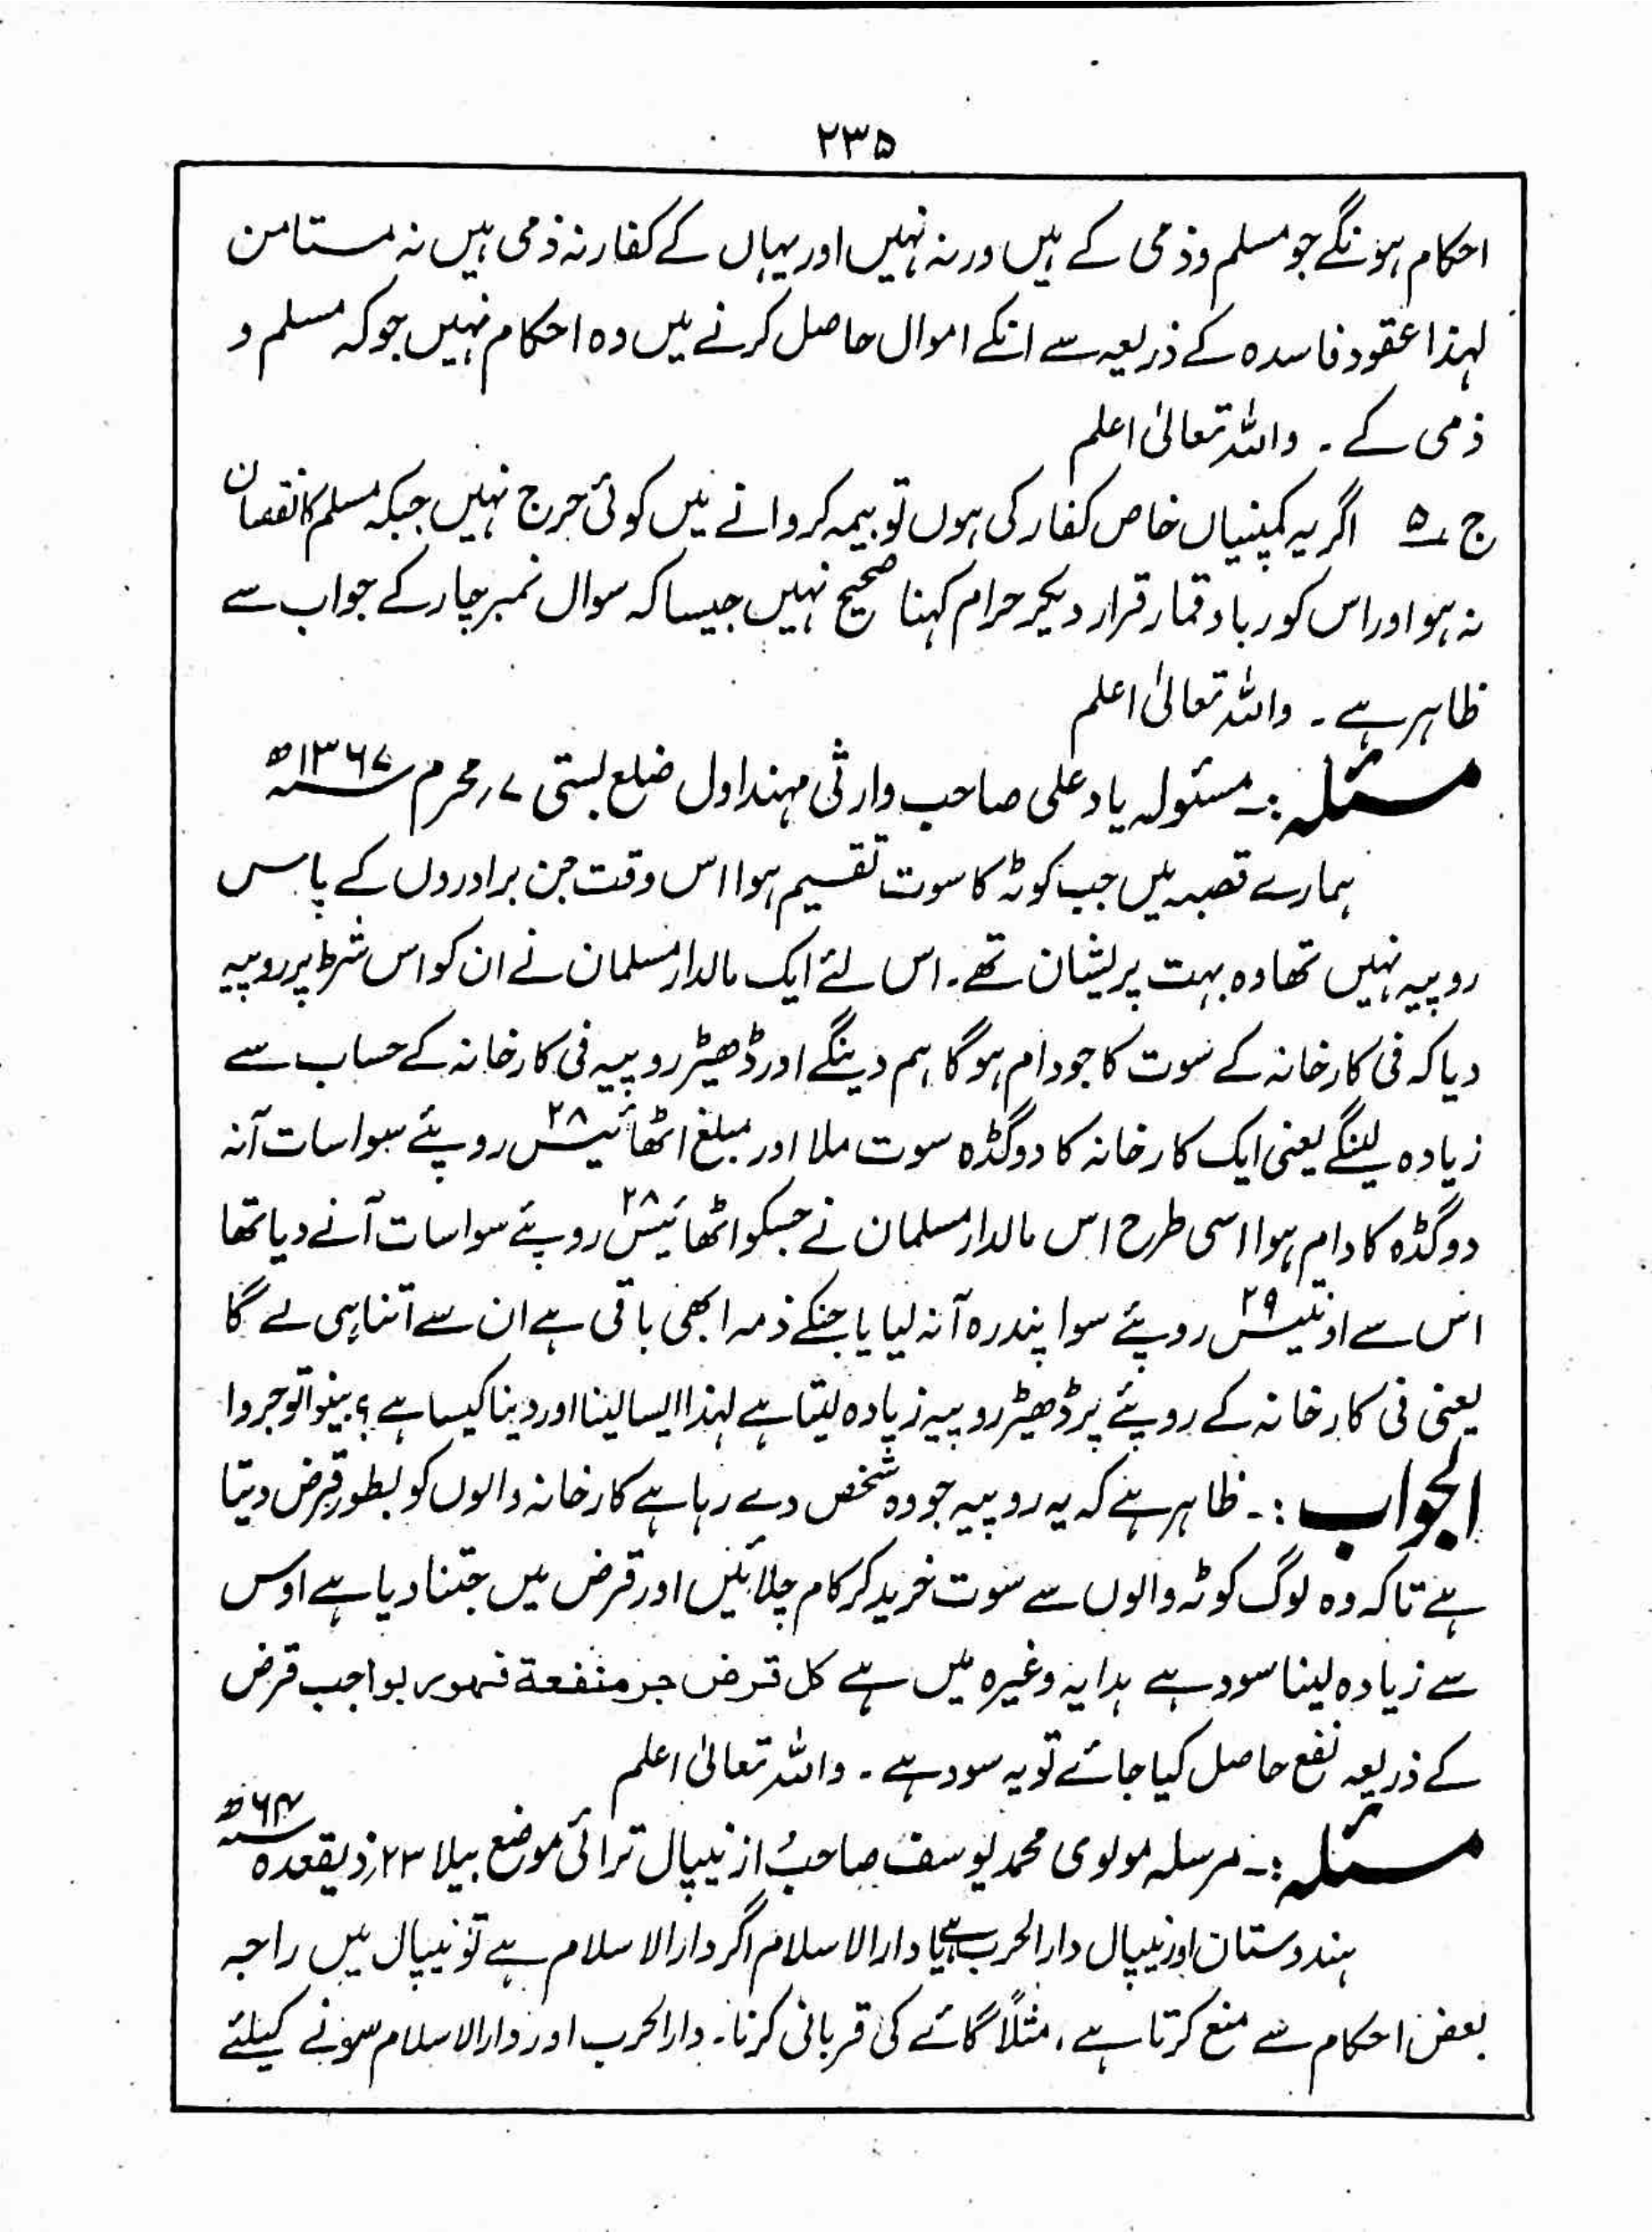 ۲۳۵
احکام ہونگے جو مسلم و ذمی کے ہیں ورنہ نہیں اور یہاں کے کفار نہ ذمی ہیں نہ مستامن
لہذا عقود فاسدہ کے ذریعہ سے انکے اموال حاصل کرنے میں وہ احکام نہیں جو کہ مسلم و
ذمی کے ۔ واللہ تعالیٰ اعلم
ج ۵ اگر یہ کمپنیاں خاص کفار کی ہوں تو بیمہ کروانے میں کوئی حرج نہیں جبکہ مسلم کا نقصان
نہ ہو اور اس کو ربا و قمار قرار دیکر حرام کہنا صحیح نہیں جیسا کہ سوال نمبر چار کے جواب سے
ظاہر ہے ۔ واللہ تعالیٰ اعلم
مسئلہ :۔ مسئولہ یاد علی صاحب وارثی مہنداول ضلع بستی ۷؍محرم ۱۳۶۷ھ
ہمارے قصبہ میں جب کوٹہ کا سوت تقسیم ہوا اس وقت جن برادروں کے پاس
روپیہ نہیں تھا وہ بہت پریشان تھے ۔ اس لئے ایک مالدار مسلمان نے ان کو اس شرط پر روپیہ
دیا کہ فی کارخانہ کے سوت کا جو دام ہوگا ہم دینگے اور ڈھیڑ روپیہ فی کارخانہ کے حساب سے
زیادہ لینگے یعنی ایک کارخانہ کا دو گڈہ سوت ملا اور مبلغ اٹھائیس ۲۸ روپئے سوا سات آنہ
دو گڈہ کا دام ہوا اسی طرح اس مالدار مسلمان نے جسکو اٹھائیس ۲۸ روپئے سوا سات آنے دیا تھا
اس سے اونتیس ۲۹ روپئے سوا پندرہ آنہ لیا یا جنکے ذمہ ابھی باقی ہے ان سے اتنا ہی لے گا
یعنی فی کارخانہ کے روپئے پر ڈھیڑ روپیہ زیادہ لیتا ہے لہذا ایسا لینا اور دینا کیسا ہے ؟ بینوا توجروا
الجواب :۔ ظاہر ہے کہ یہ روپیہ جو وہ شخص دے رہا ہے کارخانہ والوں کو بطور قرض دیتا
ہے تاکہ وہ لوگ کوٹہ والوں سے سوت خرید کر کام چلائیں اور قرض میں جتنا دیا ہے اوس
سے زیادہ لینا سود ہے ہدایہ وغیرہ میں ہے کل قرض جر منفعة فهو ربوا جب قرض
کے ذریعہ نفع حاصل کیا جائے تو یہ سود ہے ۔ واللہ تعالیٰ اعلم
مسئلہ :۔ مرسلہ مولوی محمد یوسف صاحب از نیپال ترائی موضع بیلا ۲۳؍ذیقعدہ ھ
ہندوستان اور نیپال دارالحرب ہے یا دارالاسلام اگر دارالاسلام ہے تو نیپال میں راجہ
بعض احکام سے منع کرتا ہے ، مثلاً گائے کی قربانی کرنا ۔ دارالحرب اور دارالاسلام ہونے کیلئے